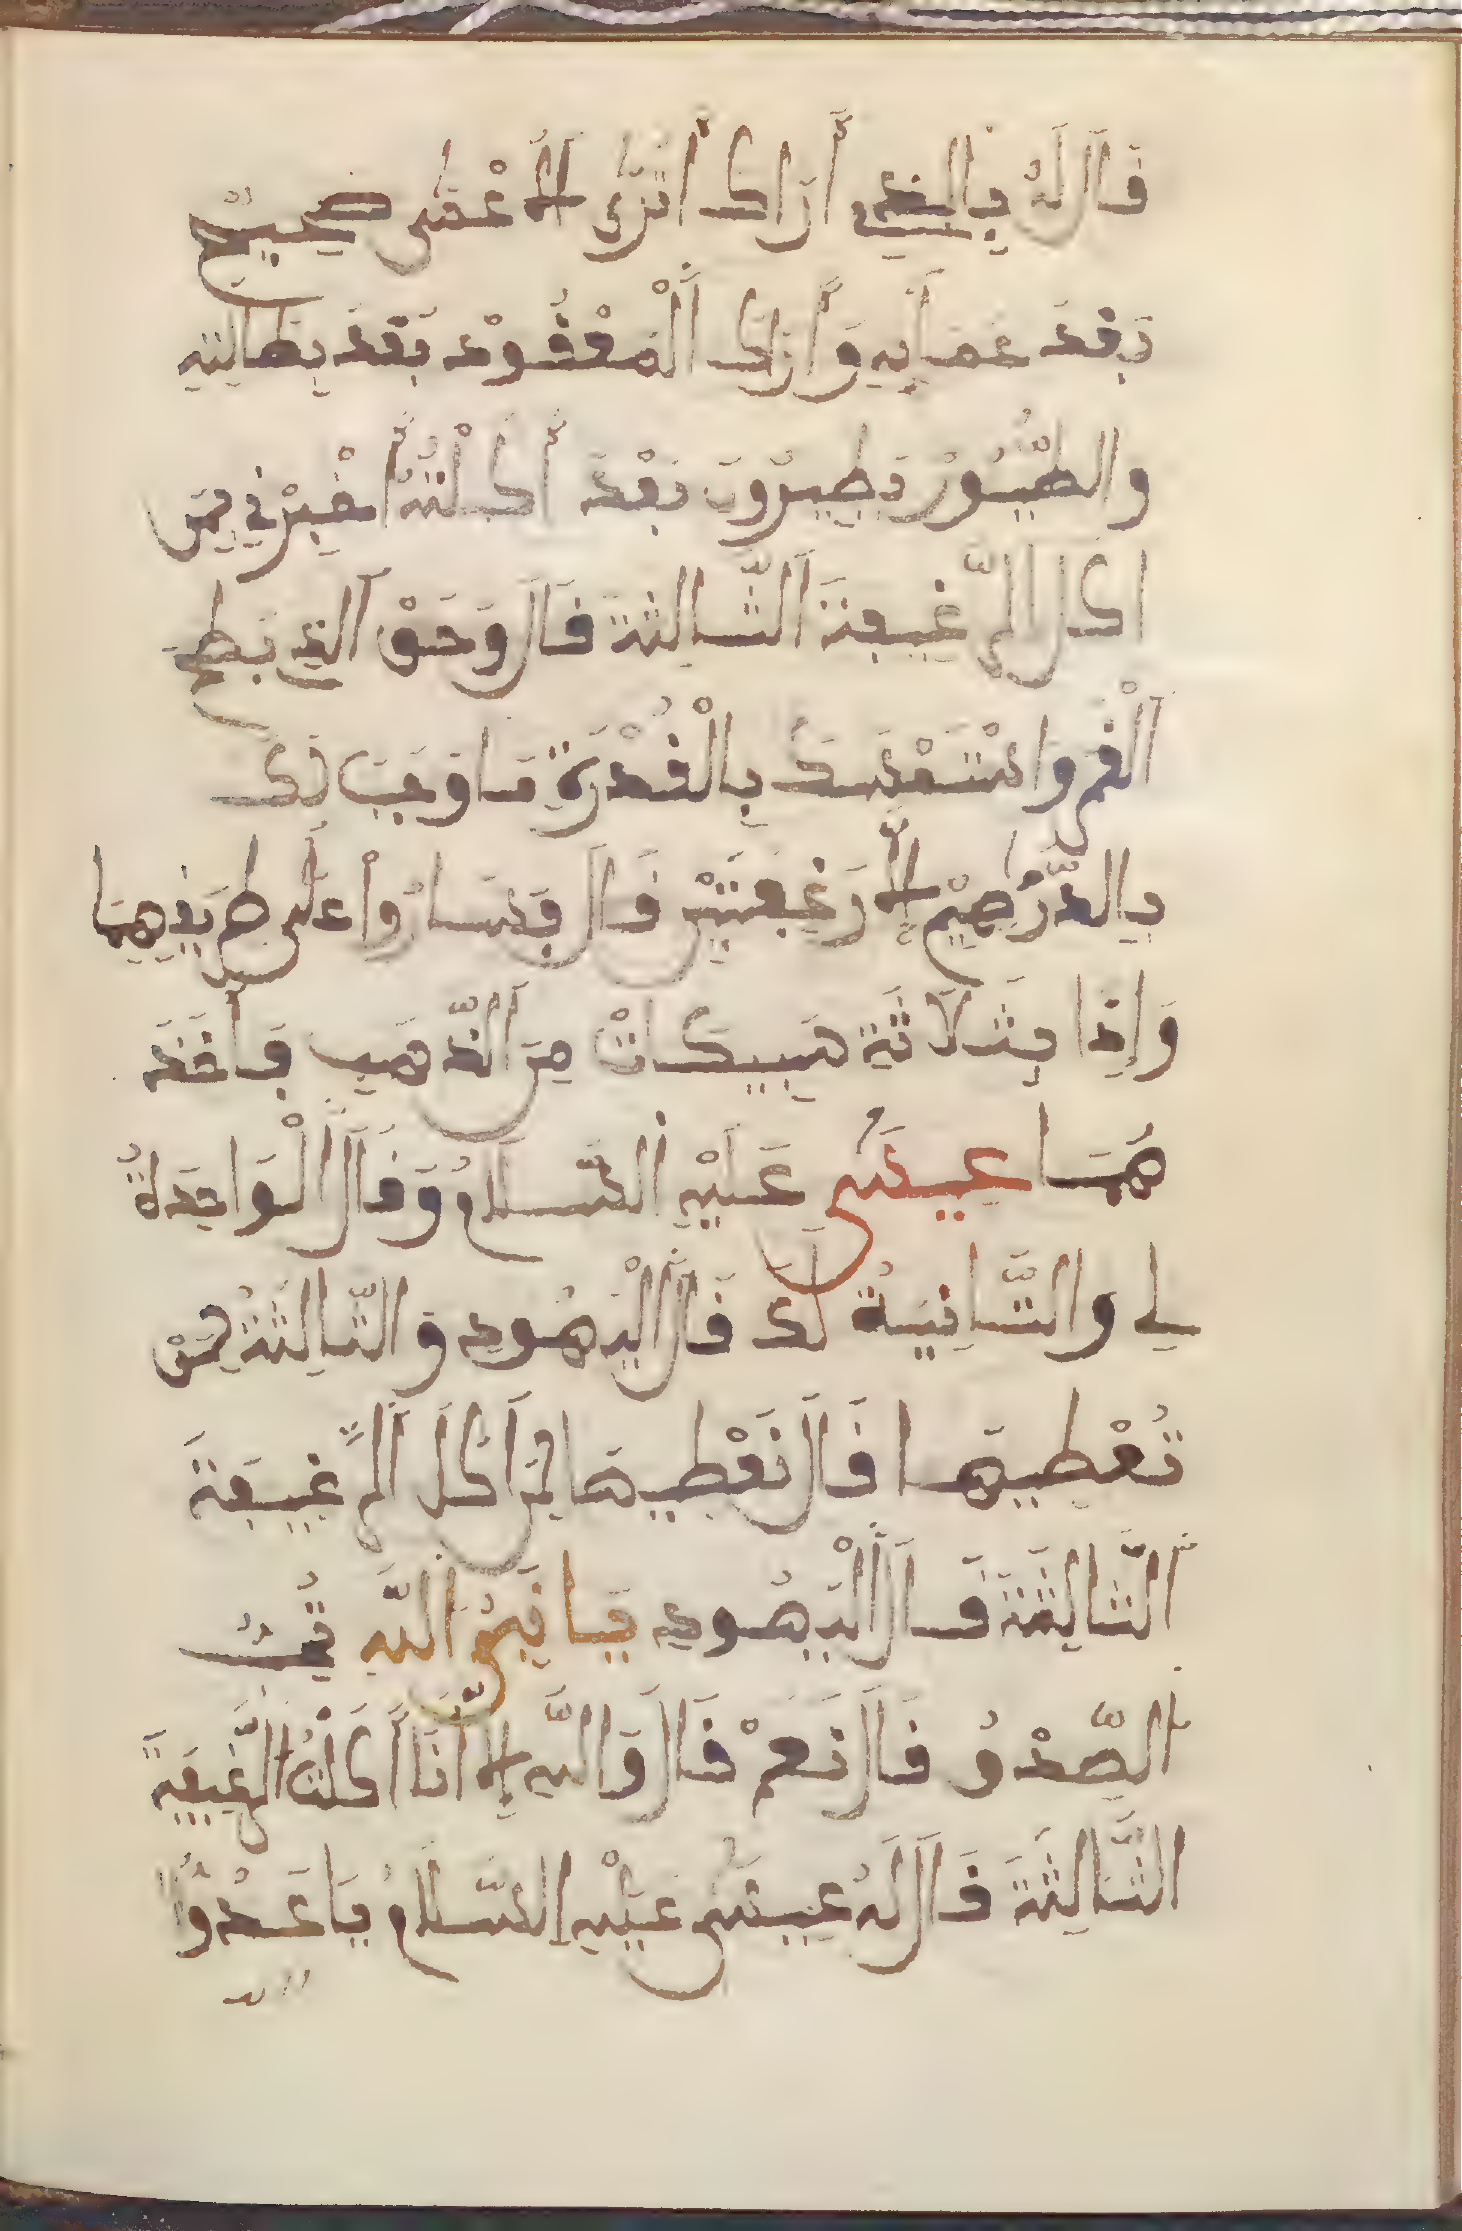 قَالَ لَهُ بِالذي أَرَاكَ أَنْزَى الْأَعْمَى صَحِيحْ
بَعْدَ عَمَايِهِ وَأَرَاكَ الْمَعْقُودْ بَعْدَ بِطَالَتِهِ
والطُّيُورْ يَطِيرُونَ بَعْدَ أَكْلَتْهُ أَخْبِرْنِي مَن
اكَلَ الرَّغِيفَةَ الثَّالِثَةَ قَالَ وَحَقْ الذِي يَطْع
الْقَمَر وَالشَّمْسَ بِالْقُدْرَةِ مَا وَجَبَ لَكَ
بِالدَّرَاهِيمْ إِلَّا رَغِيفَتَيْنْ قَالَ فَسَارُوا عَلَى طَرِيقِهِمَا
وَإِذَا بِثَلَاثَةِ سَبِيكَاتْ مِنَ الذَّهَبِ فَأَخَذَ
هُمَا عِيسَى عَلَيْهِ السَّلَامُ وَقَالَ الْوَاحِدَةُ
لِي وَالثَّانِيَةُ لَكَ قَالَ الْيَهُودِي وَالثَّالِثَةُ لِمَنْ
تُعْطِيهَا قَالَ نَعْطِيهَا لِمَن اَكَلَ الرَّغِيفَةَ
الثَّالِثَةَ قَالَ الْيَهُودِي يَا نَبِيَّ اللَّهِ قُلْتُ
الصِّدْقُ قَالَ نَعَمْ قَالَ وَاللَّهِ إِلَّا أَنَا أَكَلْتُ الرَّغِيفَةَ
الثَّالِثَةَ قَالَ لَهُ عِيسَى عَلَيْهِ السَّلَامُ يَا عَدُوَّ